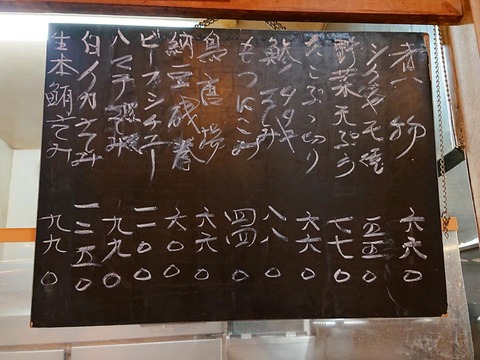 煮物 六六〇
シシャモ焼 五五〇
野菜天ぷら 七七〇
たこぶつ切り 六六〇
鯵タタキ 八八〇
もつにこみ 四四〇
鳥唐揚 六六〇
納豆磯巻 六〇〇
ビーフシチュー 一一〇〇
ハマチ 九九〇
白イカさしみ 一二五〇
生本鮪さしみ 九九〇